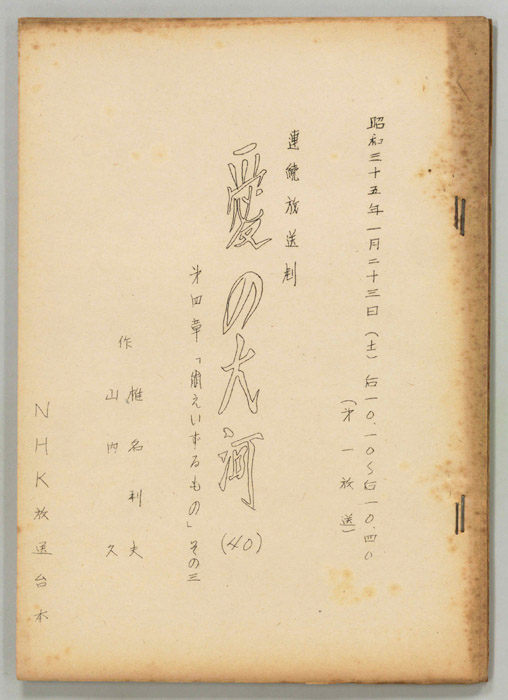 昭和三十五年一月二十三日(土)后一〇.一〇〜后一〇.四〇
(才一放送)
連続放送劇
愛の大河
(40)
才四章「潤えいずるもの」その三
作 椎名利夫
山内 久
NHK放送台本